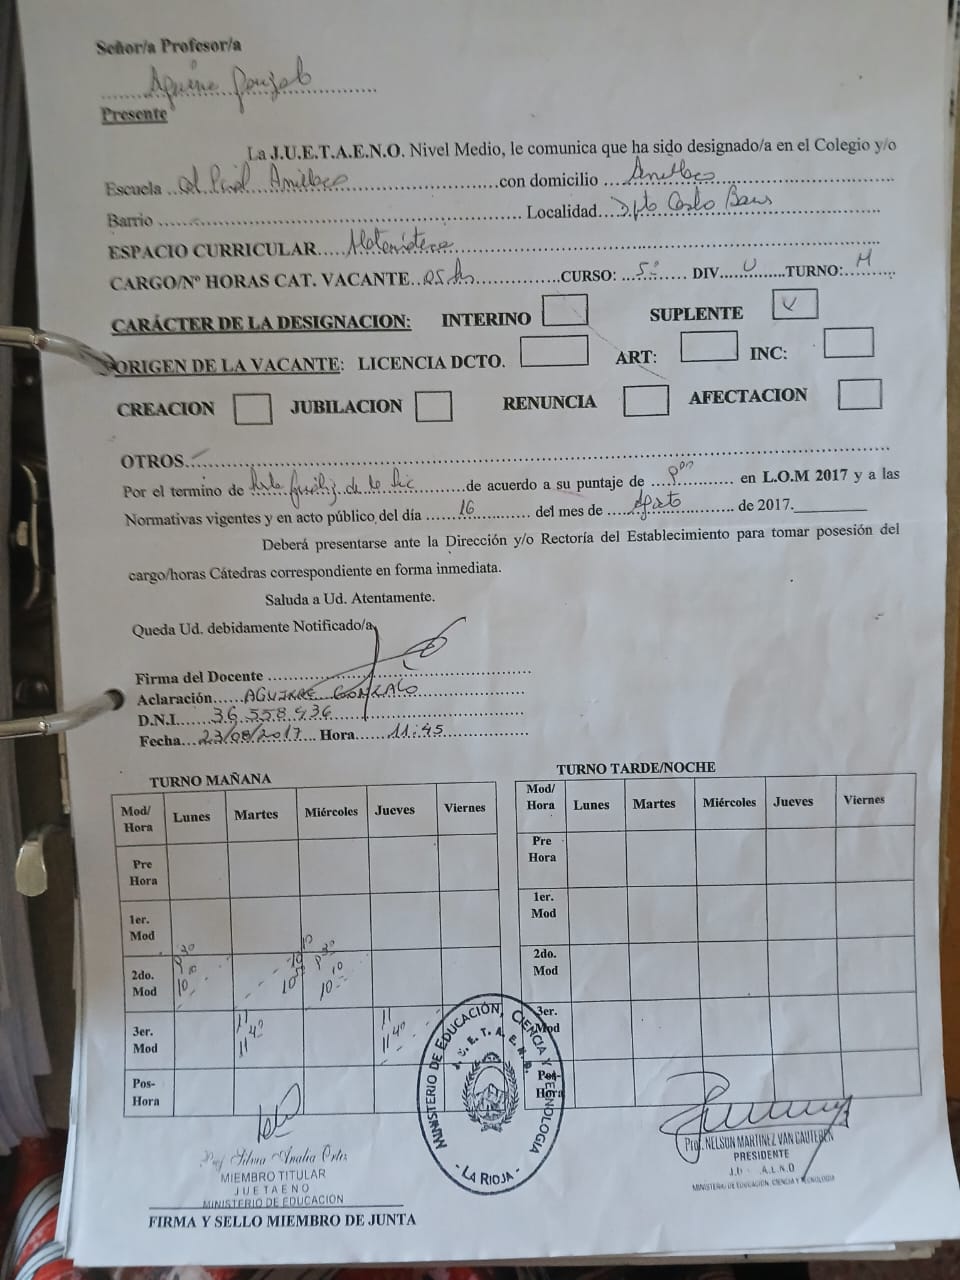 Señor/a Profesor/a
Aguirre Gonzalo
Presente
La J.U.E.T.A.E.N.O. Nivel Medio, le comunica que ha sido designado/a en el Colegio y/o
Escuela Col Pcial Anillaco con domicilio Anillaco
Barrio Localidad Dpto Castro Barros
ESPACIO CURRICULAR Matemática
CARGO/Nº HORAS CAT. VACANTE 05 hs CURSO: 5º DIV U TURNO: M
CARÁCTER DE LA DESIGNACION: INTERINO SUPLENTE
ORIGEN DE LA VACANTE: LICENCIA DCTO. ART: INC:
CREACION JUBILACION RENUNCIA AFECTACION
OTROS
Por el termino de hasta de la lic de acuerdo a su puntaje de en L.O.M 2017 y a las
Normativas vigentes y en acto público del día 16 del mes de Agosto de 2017.
Deberá presentarse ante la Dirección y/o Rectoría del Establecimiento para tomar posesión del
cargo/horas Cátedras correspondiente en forma inmediata.
Saluda a Ud. Atentamente.
Queda Ud. debidamente Notificado/a
Firma del Docente
Aclaración AGUIRRE GONZALO
D.N.I. 36.558.436
Fecha 23/08/2017 Hora 11:45
TURNO MAÑANA
Mod/ Hora Lunes Martes Miércoles Jueves Viernes
Pre Hora
1er. Mod
2do. Mod
3er. Mod
Pos- Hora
TURNO TARDE/NOCHE
Mod/ Hora Lunes Martes Miércoles Jueves Viernes
Pre Hora
1er. Mod
2do. Mod
3er. Mod
Pos- Hora
MINISTERIO DE EDUCACIÓN, CIENCIA Y TECNOLOGIA
J. U. E. T. A. E. N. O.
- LA RIOJA -
Prof. Silma Analia Ortiz
MIEMBRO TITULAR
JUETAENO
MINISTERIO DE EDUCACION
FIRMA Y SELLO MIEMBRO DE JUNTA
Prof. NELSON MARTINEZ VAN CAUTEREN
PRESIDENTE
MINISTERIO DE EDUCACIÓN, CIENCIA Y TECNOLOGIA